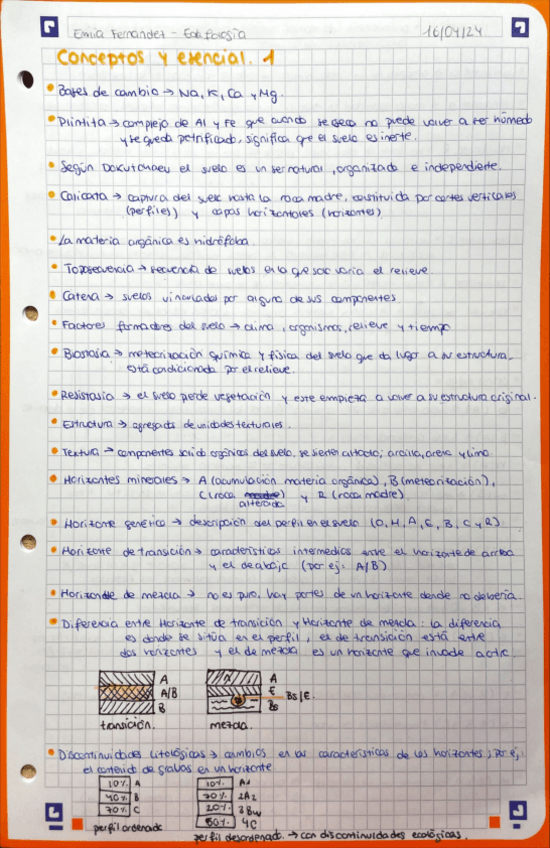 Emilia Fernandez - Edafología 16/04/24
Conceptos y esencial. 1
Bases de cambio → Na, K, Ca y Mg.
Plintita → complejo de Al y Fe que cuando se seca no puede volver a ser húmedo
y se queda petrificado, significa que el suelo es inerte.
Según Dokutchaeu el suelo es un ser natural, organizado e independiente.
Calicata → captura del suelo hasta la roca madre, constituida por cortes verticales
(perfiles) y capas horizontales (horizontes)
La materia orgánica es hidrófoba.
Toposecuencia → secuencia de suelos en la que solo varía el relieve.
Catena → suelos vinculados por alguno de sus componentes
Factores formadores del suelo → clima, organismos, relieve y tiempo
Biostasia → meteorización química y física del suelo que da lugar a su estructura.
está condicionada por el relieve.
Resistasia → el suelo pierde vegetación y este empieza a volver a su estructura original.
Estructura → agregados de unidades texturales.
Textura → componentes solido orgánicos del suelo, se sienten al tacto; arcilla, arena y limo
Horizontes minerales → A (acumulación materia orgánica), B (meteorización),
C (roca alterada) y R (roca madre)
Horizonte genético → descripción del perfil en el suelo (O, H, A, E, B, C y R)
Horizonte de transición → características intermedias entre el horizonte de arriba
y el de abajo (por ej: A/B)
Horizonte de mezcla → no es puro, hay partes de un horizonte donde no debería.
Diferencia entre Horizonte de transición y Horizonte de mezcla: la diferencia
es donde se sitúa en el perfil, el de transición está entre
dos horizontes y el de mezcla es un horizonte que invade a otro.
A
A/B
B
transición.
A
E
Bs
Bs/E.
mezcla.
Discontinuidades Litológicas → cambios en las características de los horizontes; por ej,
el contenido de gravas en un horizonte
10% A
40% B
70% C
perfil ordenado
10% A1
70% 2A2
20% 3Bw
80% 4C
perfil desordenado. → con discontinuidades ecológicas.